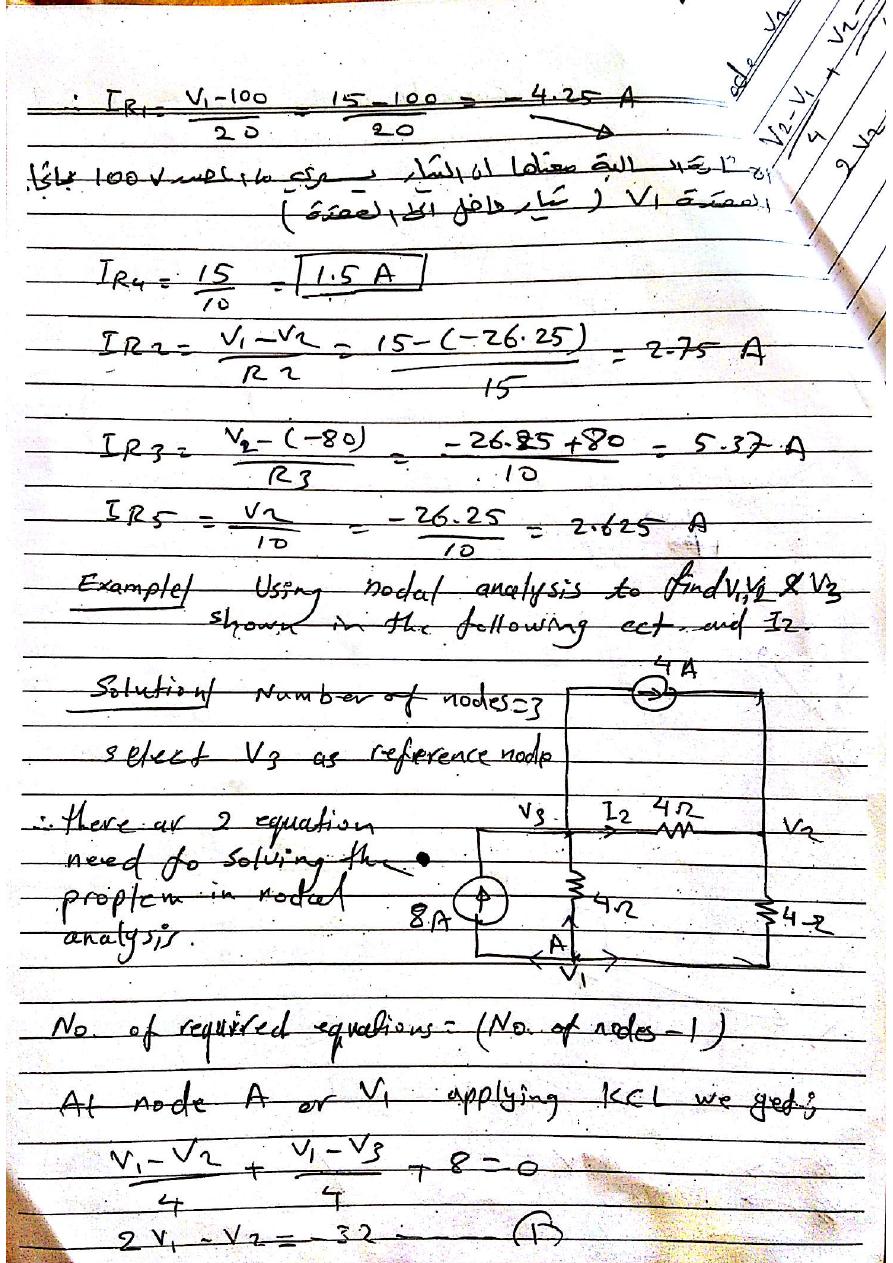 ∴ IR1 = V1-100/20 = 15-100/20 = -4.25 A
الاشارة السالبة معناها ان التيار يسري من المصدر 100 V باتجاه
العقدة V1 (تيار داخل الى العقدة)
IR4 = 15/10 = 1.5 A
IR2 = V1-V2/R2 = 15-(-26.25)/15 = 2.75 A
IR3 = V2-(-80)/R3 = -26.25+80/10 = 5.37 A
IR5 = V2/10 = -26.25/10 = 2.625 A
Example/ Using nodal analysis to find V1, V2 & V3
shown in the following cct. and I2.
4A
Solution/ Number of nodes=3
select V3 as reference node
V3 I2 4Ω V2
∴ there ar 2 equation
need to solving the
proplem in nodal
analysis.
8A 4Ω 4Ω
A
V1
No. of required equations = (No. of nodes -1)
At node A or V1 applying KCL we get;
V1-V2/4 + V1-V3/4 + 8 = 0
2V1 - V2 = -32 ------ ①
ode V2
V2-V1/4 + V2-
2V2